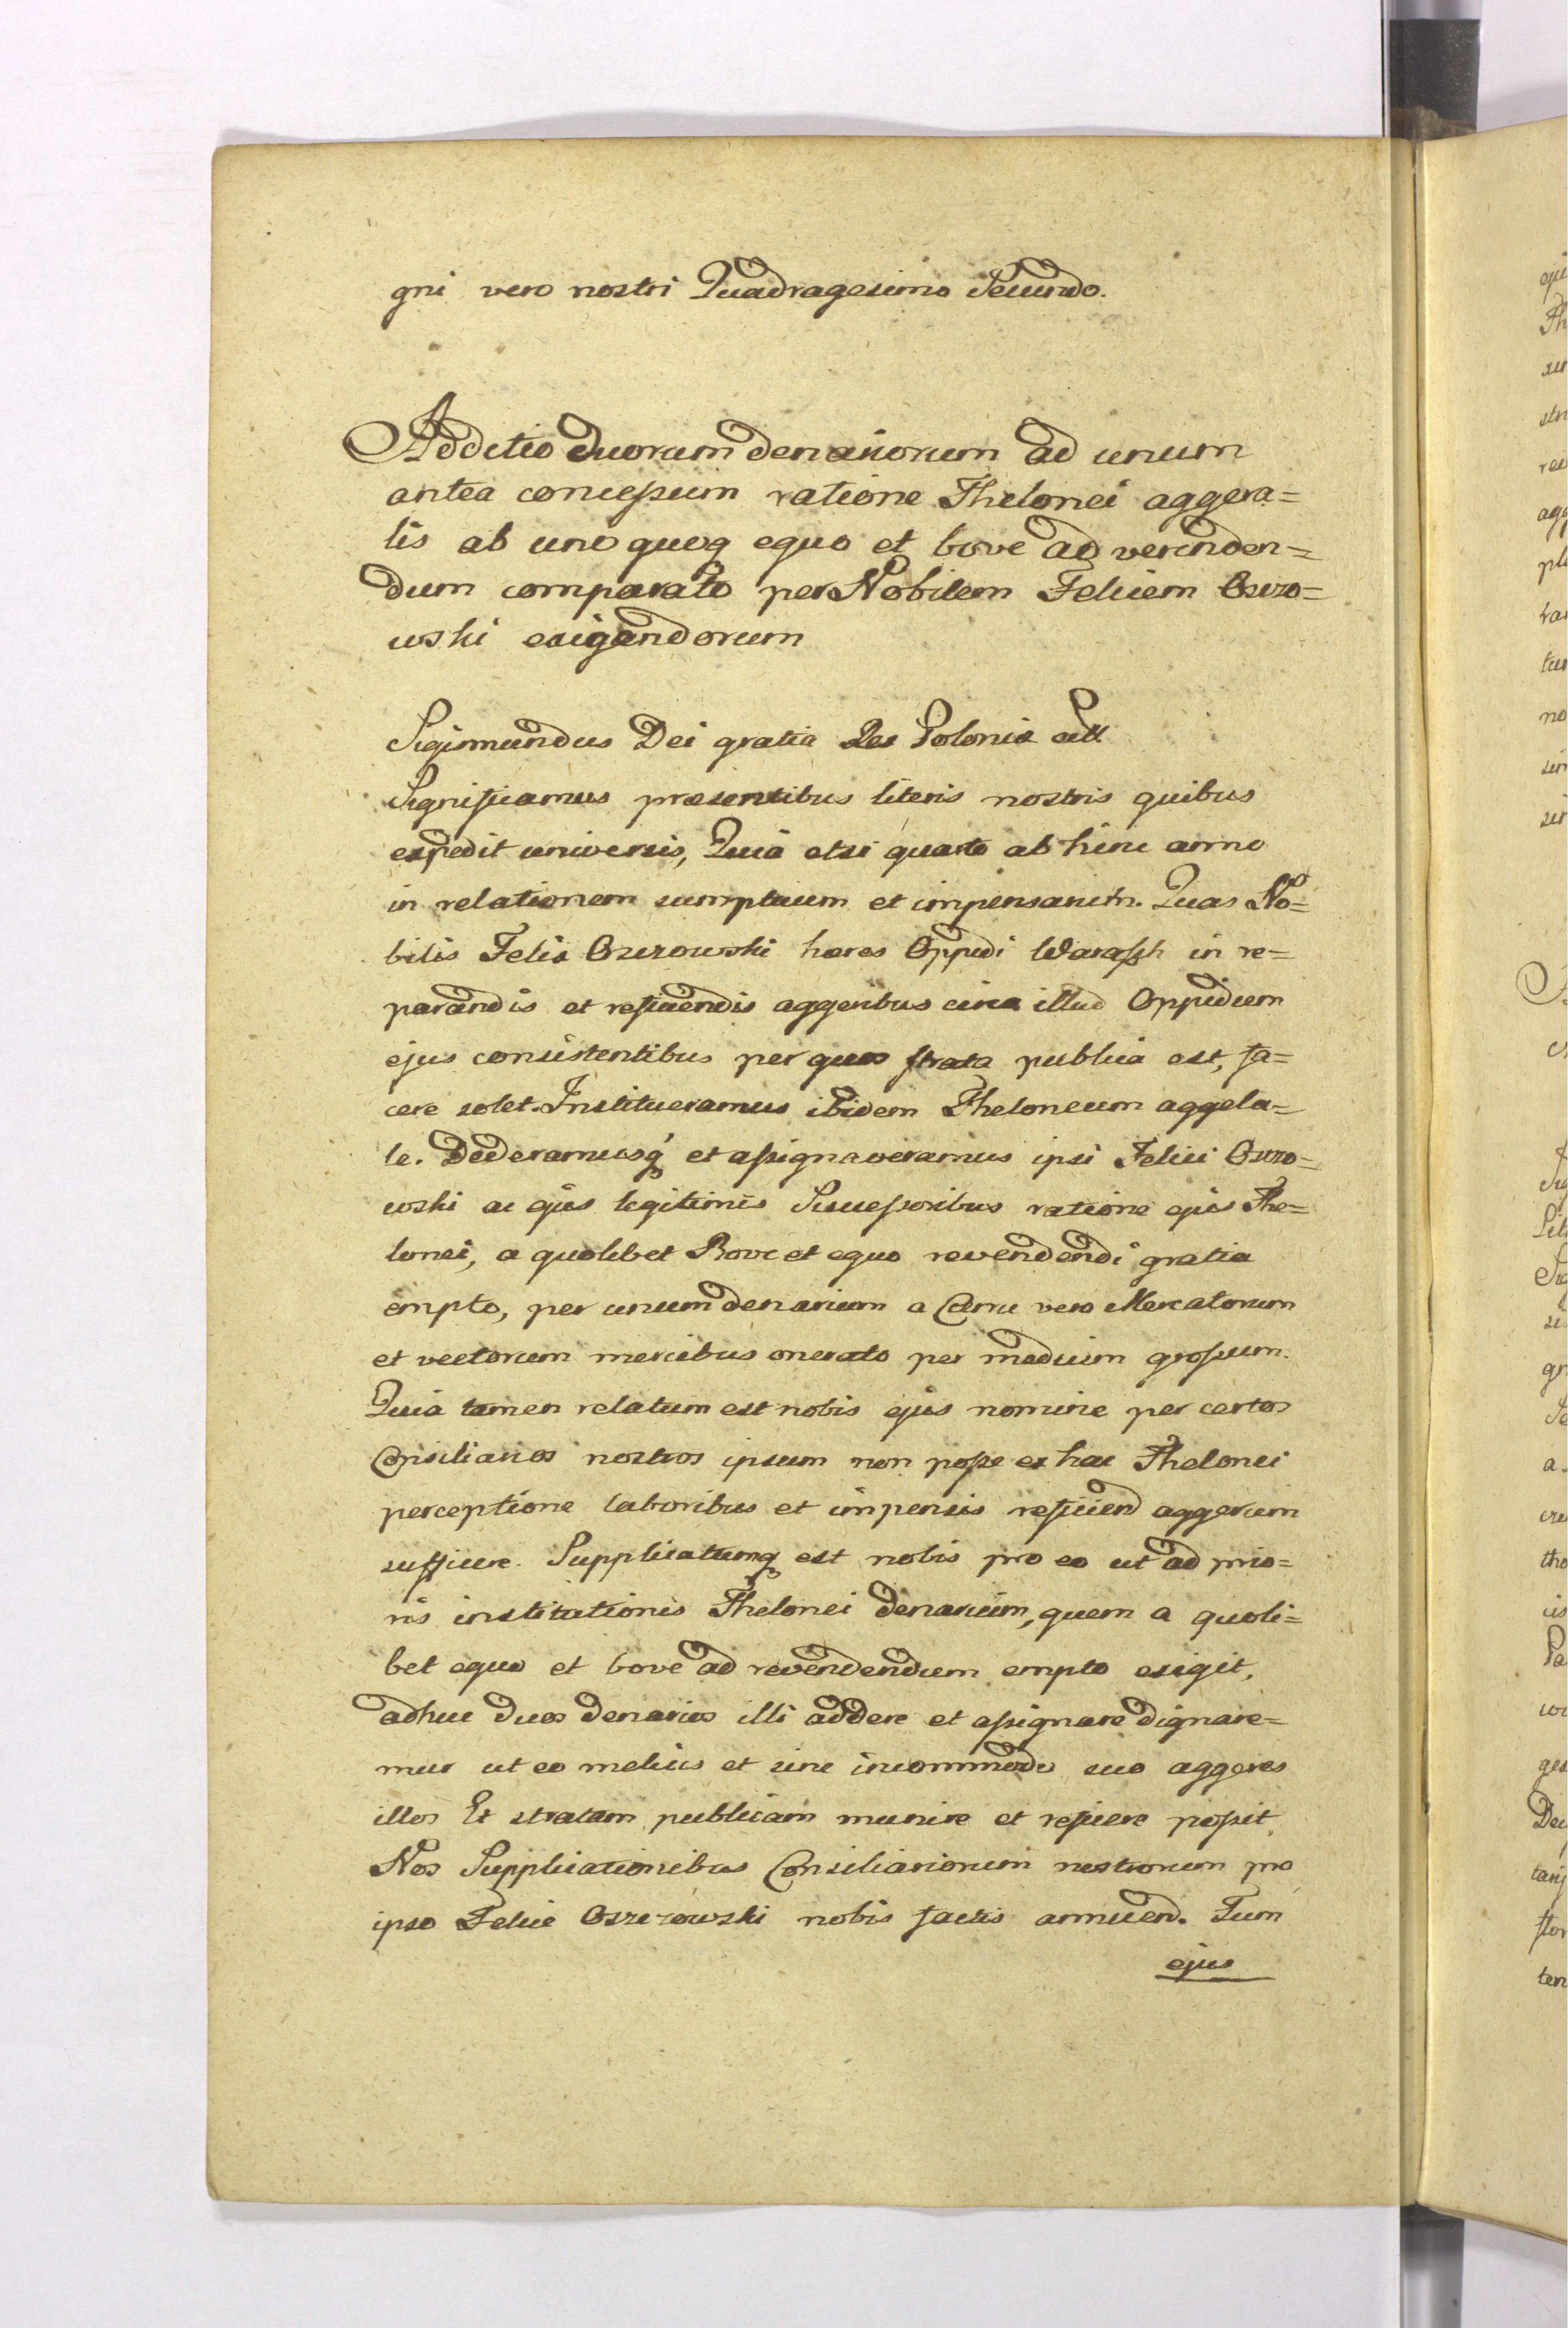 gni vero nostri Quadragesimo Secundo.
Additio duorum denariorum ad unum
antea concessum ratione Thelonei aggera=
lis ab uno quoq equo et bove ad verenden=
dum comparato per Nobilem Felicem Oszro=
wski exigendorum
Sigismundus Dei gratia Rex Poloniæ
Significamus præsentibus literis nostris quibus
expedit universis, Quia etsi quarto ab hinc anno
in relationem sumptuum et impensarum. Quas No=
bilis Felix Oszrowski hæres Oppidi in re=
parandis et reficiendis aggeribus circa illud Oppidum
ejus consistentibus per quos strata publica est, fa=
cere solet. Institueramus ibidem Theloneum aggela=
le. Dederamusq et assignaveramus ipsi Felici Oszro=
wski ac ejus legitimis Successoribus ratione ejus The=
lonei, a quolibet Bove et equo revendendi gratia
empto, per unum denarium a Curru vero Mercatorum
et vectorum mercibus onerato per medium grossum.
Quia tamen relatum est nobis ejus nomine per certos
Consiliarios nostros ipsum non posse ex hac Thelonei
perceptione laboribus et impensis reficiend aggerum
sufficere. Supplicatumq est nobis pro eo ut ad prio=
ris institutionis Thelonei denarium, quem a quoli=
bet equo et bove ad revendendum empto exigit,
adhuc duos denarios illi addere et assignare dignare=
mur ut eo melius et sine incommodo suo aggeres
illos Et stratam publicam munire et reficere possit.
Nos Supplicationibus Consiliariorum nostrorum pro
ipso Felice Oszrowski nobis factis annuend. Tum
ejus